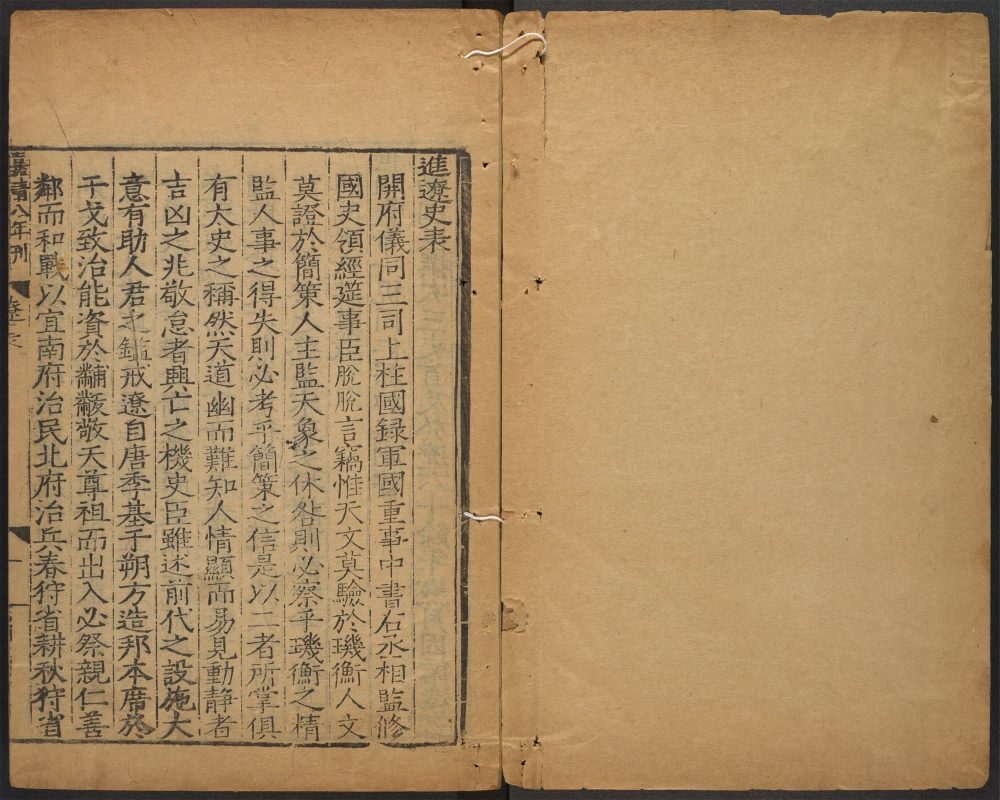 進遼史表
開府儀同三司上柱國録軍國重事中書右丞相監修
國史領經筵事臣脫脫言竊惟天文莫驗於璣衡人文
莫證於簡策人主監天象之休咎則必察乎璣衡之精
監人事之得失則必考乎簡策之信是以二者所掌俱
有太史之稱然天道幽而難知人情顯而易見動静者
吉凶之兆敬怠者興亡之機史臣雖述前代之設施大
意有助人君之鑑戒遼自唐季基于朔方造邦本席於
干戈致治能資於黼黻敬天尊祖而出入必祭親仁善
鄰而和戰以宜南府治民北府治兵春狩省耕秋狩省
嘉靖八年刊